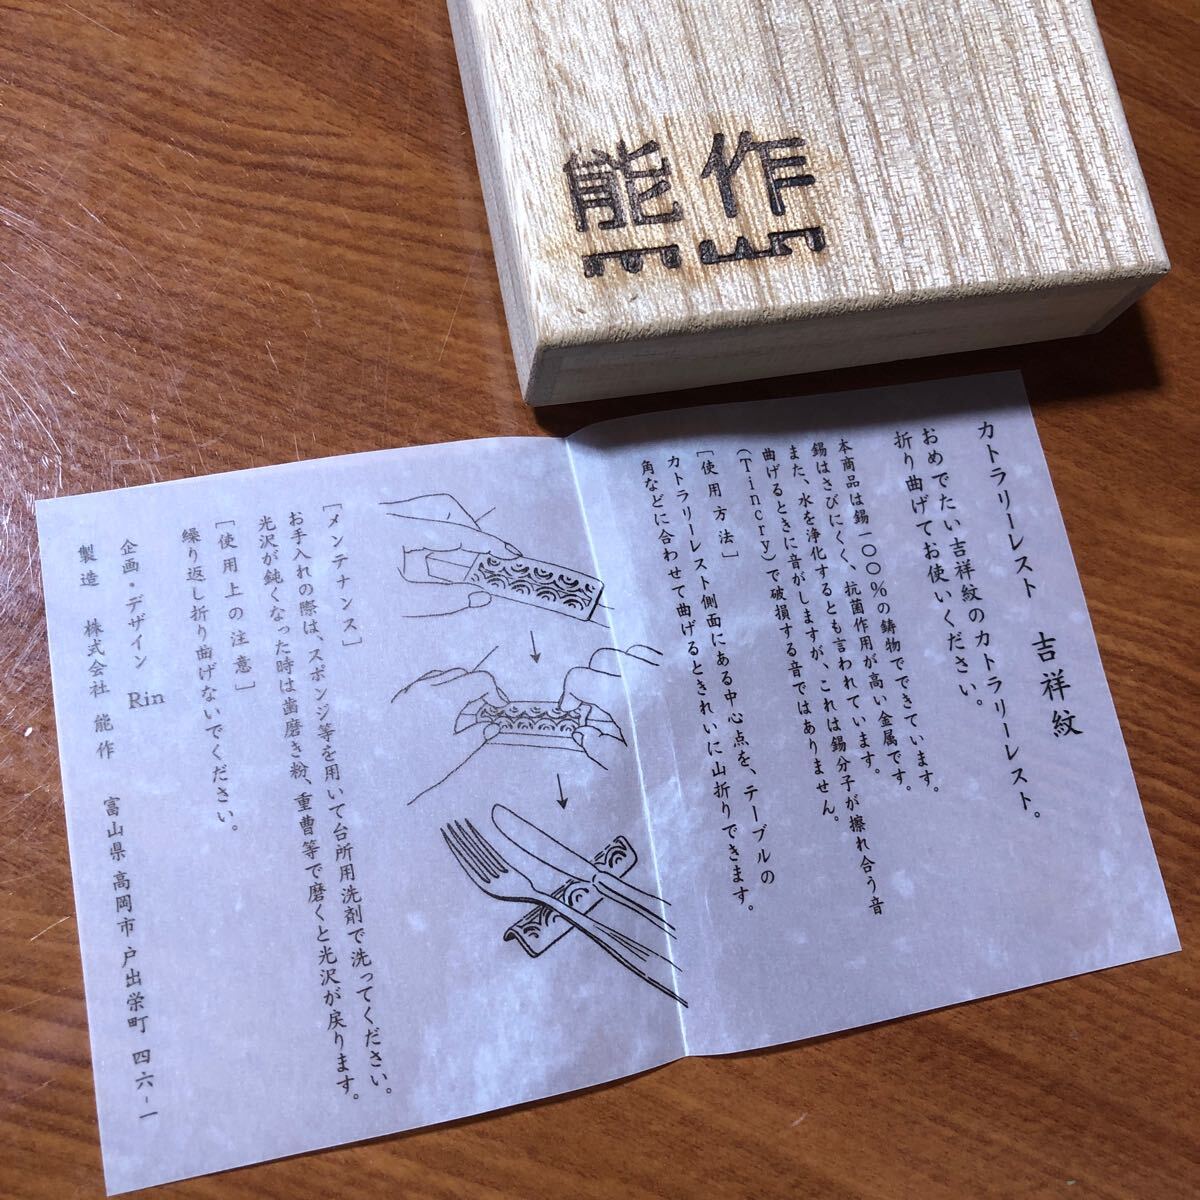 能作
カトラリーレスト 吉祥紋
おめでたい吉祥紋のカトラリーレスト。
折り曲げてお使いください。
本商品は錫一〇〇％の鋳物でできています。
錫はさびにくく、抗菌作用が高い金属です。
また、水を浄化するとも言われています。
曲げるときに音がしますが、これは錫分子が擦れ合う音
(Tincry)で破損する音ではありません。
［使用方法］
カトラリーレスト側面にある中心点を、テーブルの
角などに合わせて曲げるときれいに山折りできます。
［メンテナンス］
お手入れの際は、スポンジ等を用いて台所用洗剤で洗ってください。
光沢が鈍くなった時は歯磨き粉、重曹等で磨くと光沢が戻ります。
［使用上の注意］
繰り返し折り曲げないでください。
企画・デザイン Rin
製造 株式会社 能作 富山県高岡市戸出栄町 四六-一